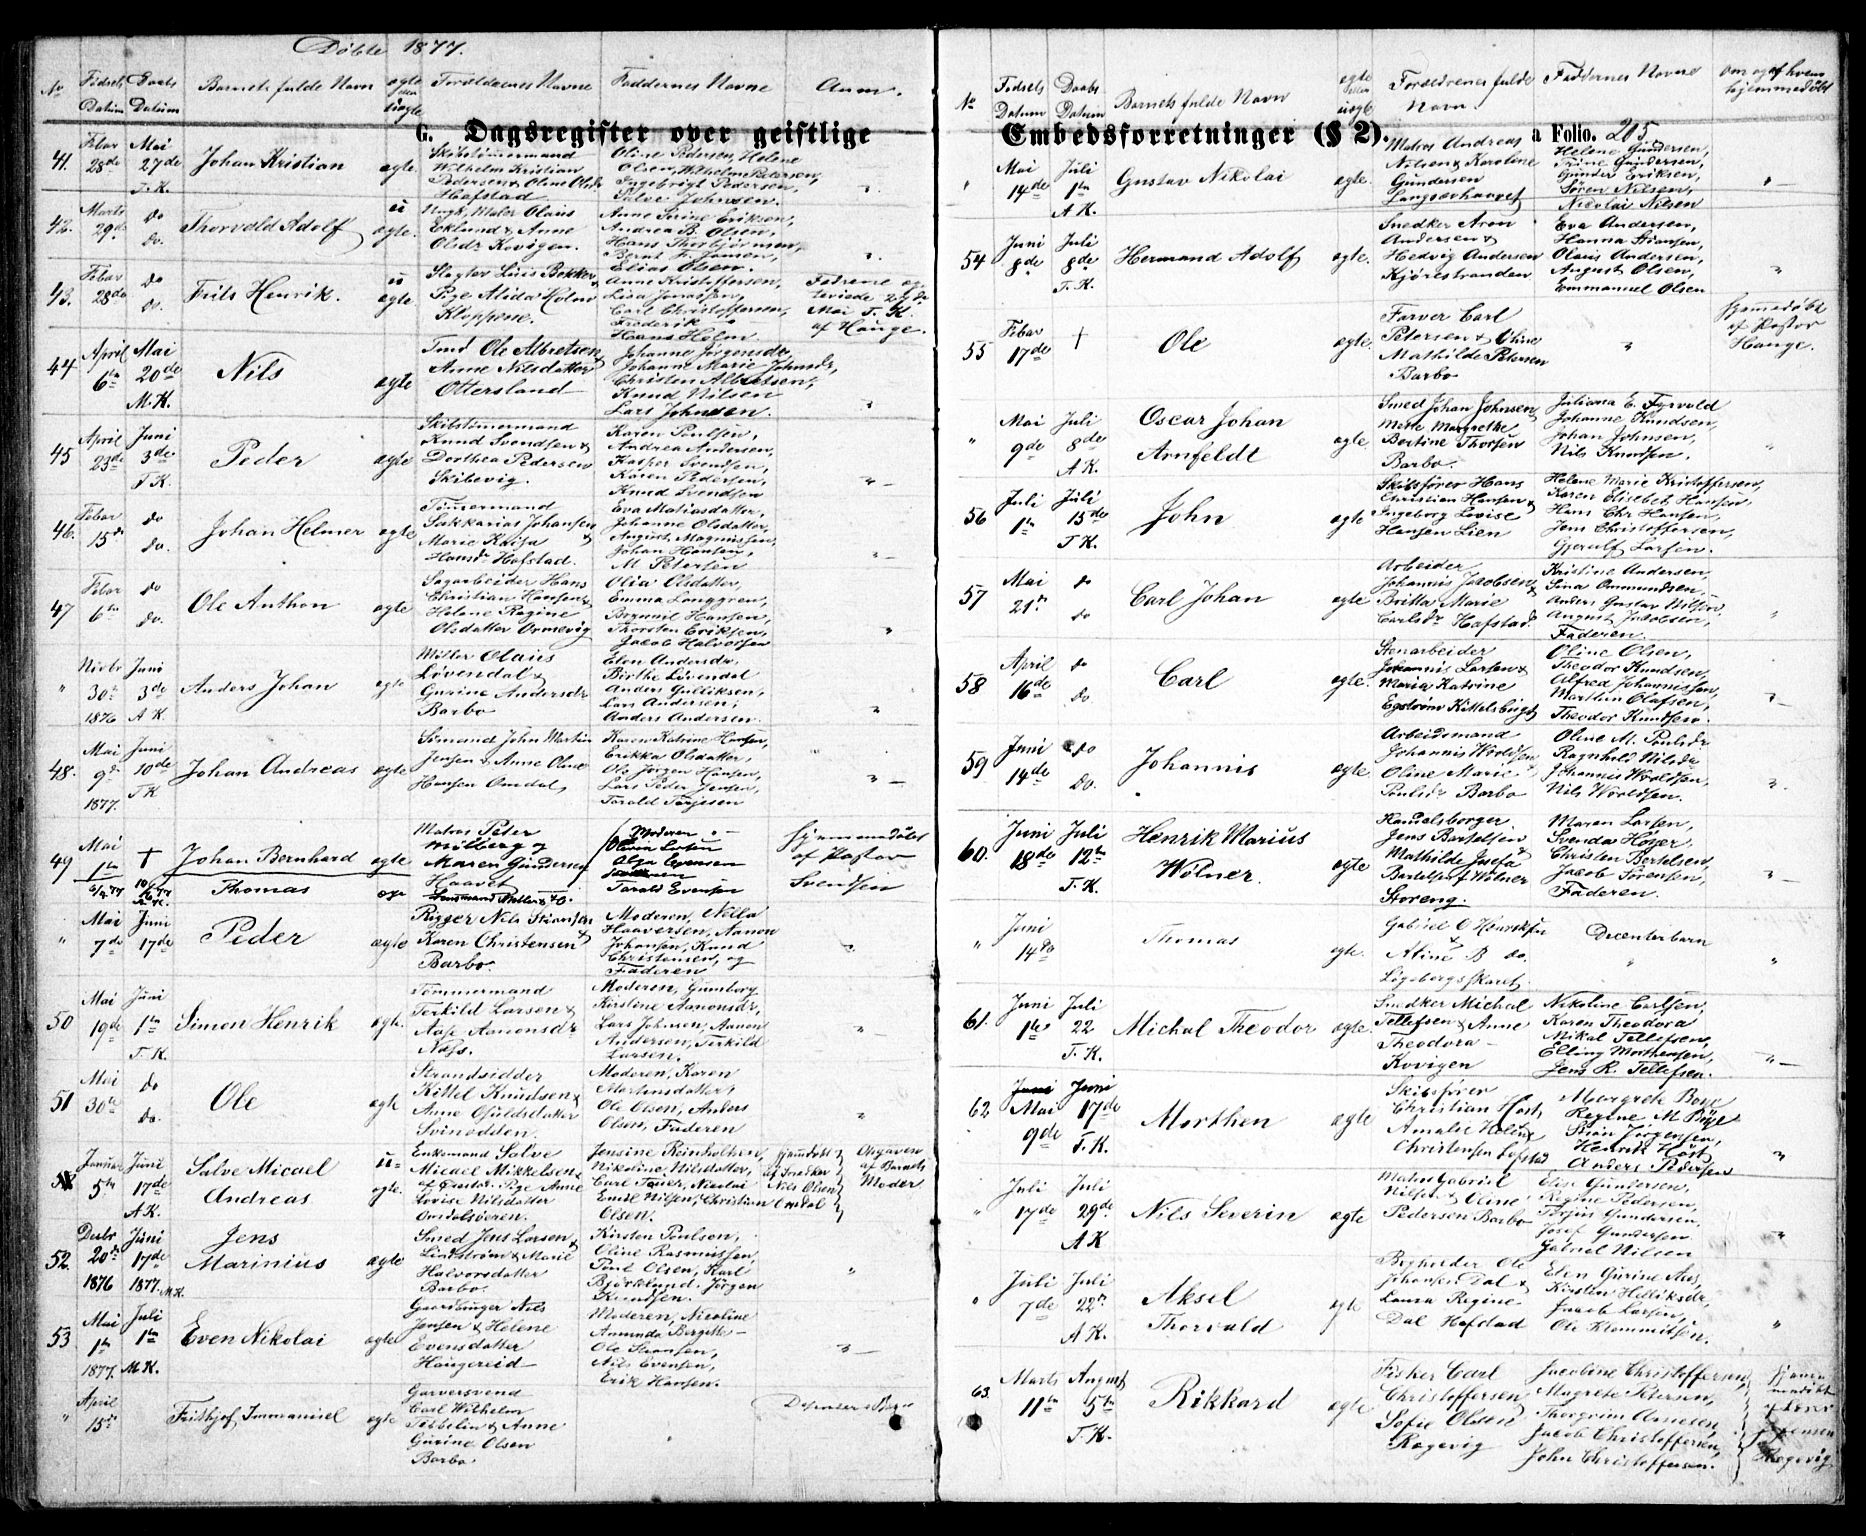 Döbte 1877.
No Fødsels Datum Daabs Datum Barnets fulde Navn ægte eller uægte Foreldrenes Navne Faddernes Navne Anm.
G. Dagsregister over geistlige
41. Febar 28de Mai 27de T.K. Johan Kristian ægte
Skibstømmermand
Wilhelm Kristian
Pedersen & Oline Olsdr
Hofstad
Oline Pedersen, Helene
Olsen, Wilhelm Petersen,
Ingebrigt Pedersen,
Salve Johnsen.
42. Marts 29de do do. Thorvold Adolf uægte.
Ungk. Maler Olaus
Eklund & Anne
Olsdr Kovigen.
Anne Serine Eriksen,
Andrea B. Olsen,
Hans Thorbjörnsen,
Bernt F. Jansen,
Elias Olsen.
43. Febar 28de do do. Frits Henrik. uægte
Slagter Luis Bekker
Pige Alida Holm
Kloppene.
Anne Kristoffersen,
Lisa Jonassen,
Carl Christoffersen,
Frederik
Hans Holm
Mai T.K.
af Hauge.
44 April 6te Mai 20de M.K. Nils ægte
Ole Albretsen &
Anne Nilsdatter
Ottersland
Johanne Jörgensdr,
Johanne Marie Johnsdr,
Christen Albretsen,
Knud Nilsen
Lars Johnsen.
45 April 23de Juni 3de T.K. Peder ægte
Skibstömermand
Knud Svendsen &
Dorthea Pedersen
Skibevig.
Karen Poulsen,
Andrea Andersen,
Kasper Svendsen,
Karen Pedersen,
Knud Svendsen
46. Febar 15de do do. Johan Helmer ægte
Tömermand
Sakkarias Johansen &
Marie Kaisa
Hansdr Hofstad.
Eva Matiasdatter,
Johanne Olsdatter,
August Magnussen,
Johan Hansen,
M Petersen
47 Febar 6te do do. Ole Anthon ægte
Sagarbeider Hans
Christian Hansen &
Helene Regine
Olsdatter Ormevig
Olia Olsdatter,
Emma Longgren,
Bognild Hansen,
Thorsten Eriksen,
Jacob Halvorsen
" Novbr 30te 1876 Juni 3de A K. Anders Johan ægte
Möller Olaus
Løvendal &
Gurine Andersdr
Barbo
Elen Andersdr,
Birthe Lövendal
Anders Gulliksen,
Lars Andersen,
Anders Andersen.
48. Mai 9de 1877. Juni 10de T K. Johan Andreas ægte
Sömand John Martin
Jensen & Anne Oline
Hansen Omdal,
Karen Katrine Hansen,
Erikka Olsdatter,
Ole Jörgen Hansen,
Lars Peder Jensen,
Torald Terjesen
49 Mai 1te † Johan Bernhard ægte
Matros Peter
Mölberg og
Maren Gundersen
Haavet
Hjemmedöbt
af Pastor
Svendsen
Thomas
Moderen
Olga Evensen
Torald Evensen
" Mai 7de Juni 17de Peder ægte
Rigger Nils Stiansen &
Karen Christensen
Barbo.
Moderen, Nella
Haaversen, Aanon
Johansen, Knud
Christensen, og
Faderen
50 Mai 19de Juni 1te T.K. Simon Henrik ægte.
Tömmermand
Terkild Larsen &
Aase Aanonsdr
Næss.
Moderen, Gunborg
Kirstine Aanonsdr,
Lars Johnsen, Aanon
Andersen, Terkild
Larsen.
51 Mai 30te do do. Ole ægte
Strandsidder
Kittel Knudsen &
Anne Osuldsdatter
Svinodden.
Moderen, Karen
Mortensdatter,
Ole Olsen, Anders
Olsen, Faderen
Januar 5te Juni 17de A.K. Salve Micael Andreas uægte.
Enkemand Salve
Micael Mikkelsen &
Pige Anne
Lovise Nilsdatter
Omdalsøeren.
Jensine Reinholtsen,
Nikoline Nilsdatter,
Carl Nicolai
Emil Nilsen, Christian
Olsen.
Hjemdöbt af Snedker Nils Olsen Omdal
Opgaven af Barnets Moder
52. Decbr 20de 1876 Juni 17de 1877. M.K. Jens Marinius ægte
Smed Jens Larsen
Lindström & Marie
Halvorsdatter
Barbo.
Kirsten Poulsen,
Oline Rasmussen,
Pout Olsen, Karl
Björklund, Jörgen
Knudsen.
53 Mai 1te 1877. Juli 1te M.K. Even Nikolai ægte
Gaardbruger Nils
Jensen & Helene
Evensdatter
Haugereid
Moderen, Nicoline
Amunda Bergitte
Ole Hansen,
Nils Evensen,
Erik Hansen.
" April 15de Fridhjof Immanuel ægte
Garversvend
Carl Wilhelm
Tebbelin & Anne
Gurine Olsen
Barbo.
No Fødsels Datum Daabs Datum Barnets fulde Navn ægte eller uægte Foreldrenes fulde Navn Faddernes Navne Om og af hvem hjemmedöbt
Embedsforretninger (§ 2). a Folio. 205
Mai 14de Juli 1te A K. Gustav Nikolai ægte.
Matros Andreas
Nilsen & Karoline
Gundersen
Langsævhauvet
Helene Gundersen,
Trine Gundersen,
Gunder Eriksen,
Sören Nilsen,
Nicolai Nilsen
54 Juni 8de Juli 8de T.K. Hermand Adolf ægte.
Snedker Aron
Andersen &
Hedvig Andersen
Kjörestranden
Eva Andersen,
Hanna Stiansen,
Olaus Andersen,
August Olsen,
Emmanuel Olsen
55 Febar 17de † Ole ægte.
Farver Carl
Petersen & Oline
Mathilde Petersen
Barbo
Hjemedöbt
af Pastor
Hauge.
" Mai 9de Juli 8de A K. Oscar Johan Arnfeldt ægte
Smed Johan Johnsen &
Mette Margrethe
Bertine Thorsen
Barbo.
Juliana E. Fyrvald
Johanne Knudsen,
Johan Johnsen,
Nils Knudsen.
56 Juli 1te Juli 15de T K. John ægte
Skibsförer Hans
Christian Hansen &
Ingeborg Lovise
Hansen Lien
Helene Marie Kristoffersen,
Karen Elisebet Hansen,
Hans Chr Hansen,
Jens Christoffersen,
Gjerulf Larsen.
57 Mai 21te do do Carl Johan ægte
Arbeider
Johannis Jacobsen &
Britta Marie
Carlsdr Hofstad.
Kristine Andersen,
Sina Ommundsen,
Anders Gustav Nilsen,
August Jacobsen,
Faderen.
58 April 16de do do. Carl ægte.
Stenarbeider
Johannis Larsen &
Maria Katrine
Egström Kittelsbugt
Oline Olsen,
Theodor Knudsen,
Alfred Johannissen,
Martin Olafsen,
Theodor Knudsen.
59 Juni 14de do do. Johannis ægte.
Arbeidsmand
Johannis Woroldsen &
Oline Marie
Poulsdr Barbo
Oline M. Poulsdr
Ragnhild Nilsdr
Johannis Woroldsen,
Nils Woroldsen.
60. Juni 18de Juli 12te T.K. Henrik Marius Wölner. ægte
Handelsborger
Jens Bartelsen &
Mathilde Josefa
Bartelsen f. Wölner
Storeng.
Maren Larsen,
Svenda Höyer,
Christen Bertelsen,
Jacob Sörensen,
Faderen.
" Juni 14de Thomas ægte.
Gabriel O Henriksen
&
Aline B do.
Lögebergsskaret.
Decenterbarn
61. Juni 1te Juli 22 T.K. Michal Theodor ægte
Snedker Michal
Tellefsen & Anne
Theodora
Kovigen
Nikoline Carlsen,
Karen Theodora
Mikal Tellefsen,
Elling Mortensen,
Jens R. Tellefsen.
62 Mai 9de Juni 17de T.K. Morthen ægte
Skibsförer
Christian Höst
Amalie Helene
Christensen Lofstad
Margrete Boye
Regine M Böye
Stian Jörgensen,
Henrik Höst
Anders Pedersen
" Juli 17de Juli 29de A K Nils Severin ægte
Gabriel
Nilsen & Oline
Pedersen Barbo
Elise Gundersen,
Regine Pedersen,
Terjus Gundersen,
Josef Gundersen
Gabriel Nilsen
" Juli 7de Juli 22de A K. Aksel Thorvald ægte
Ole
Johansen Dal &
Laura Regine
Dal Hofstad
Elen Gurine Aas,
Kirsten Helliksdr,
Jacob Larsen,
Ole Klemmitsen.
63. Marts 11te August 5te T.K. Rikkard ægte
Fisker Carl
Christoffersen,
Sofie Olsen
Ragevig
Jacobine Christoffersen,
Magrete Petersen,
Thorgrim Arnesen,
Jacob Christoffersen,
John Christoffersen.
Hjemmedöbt
Ragevig